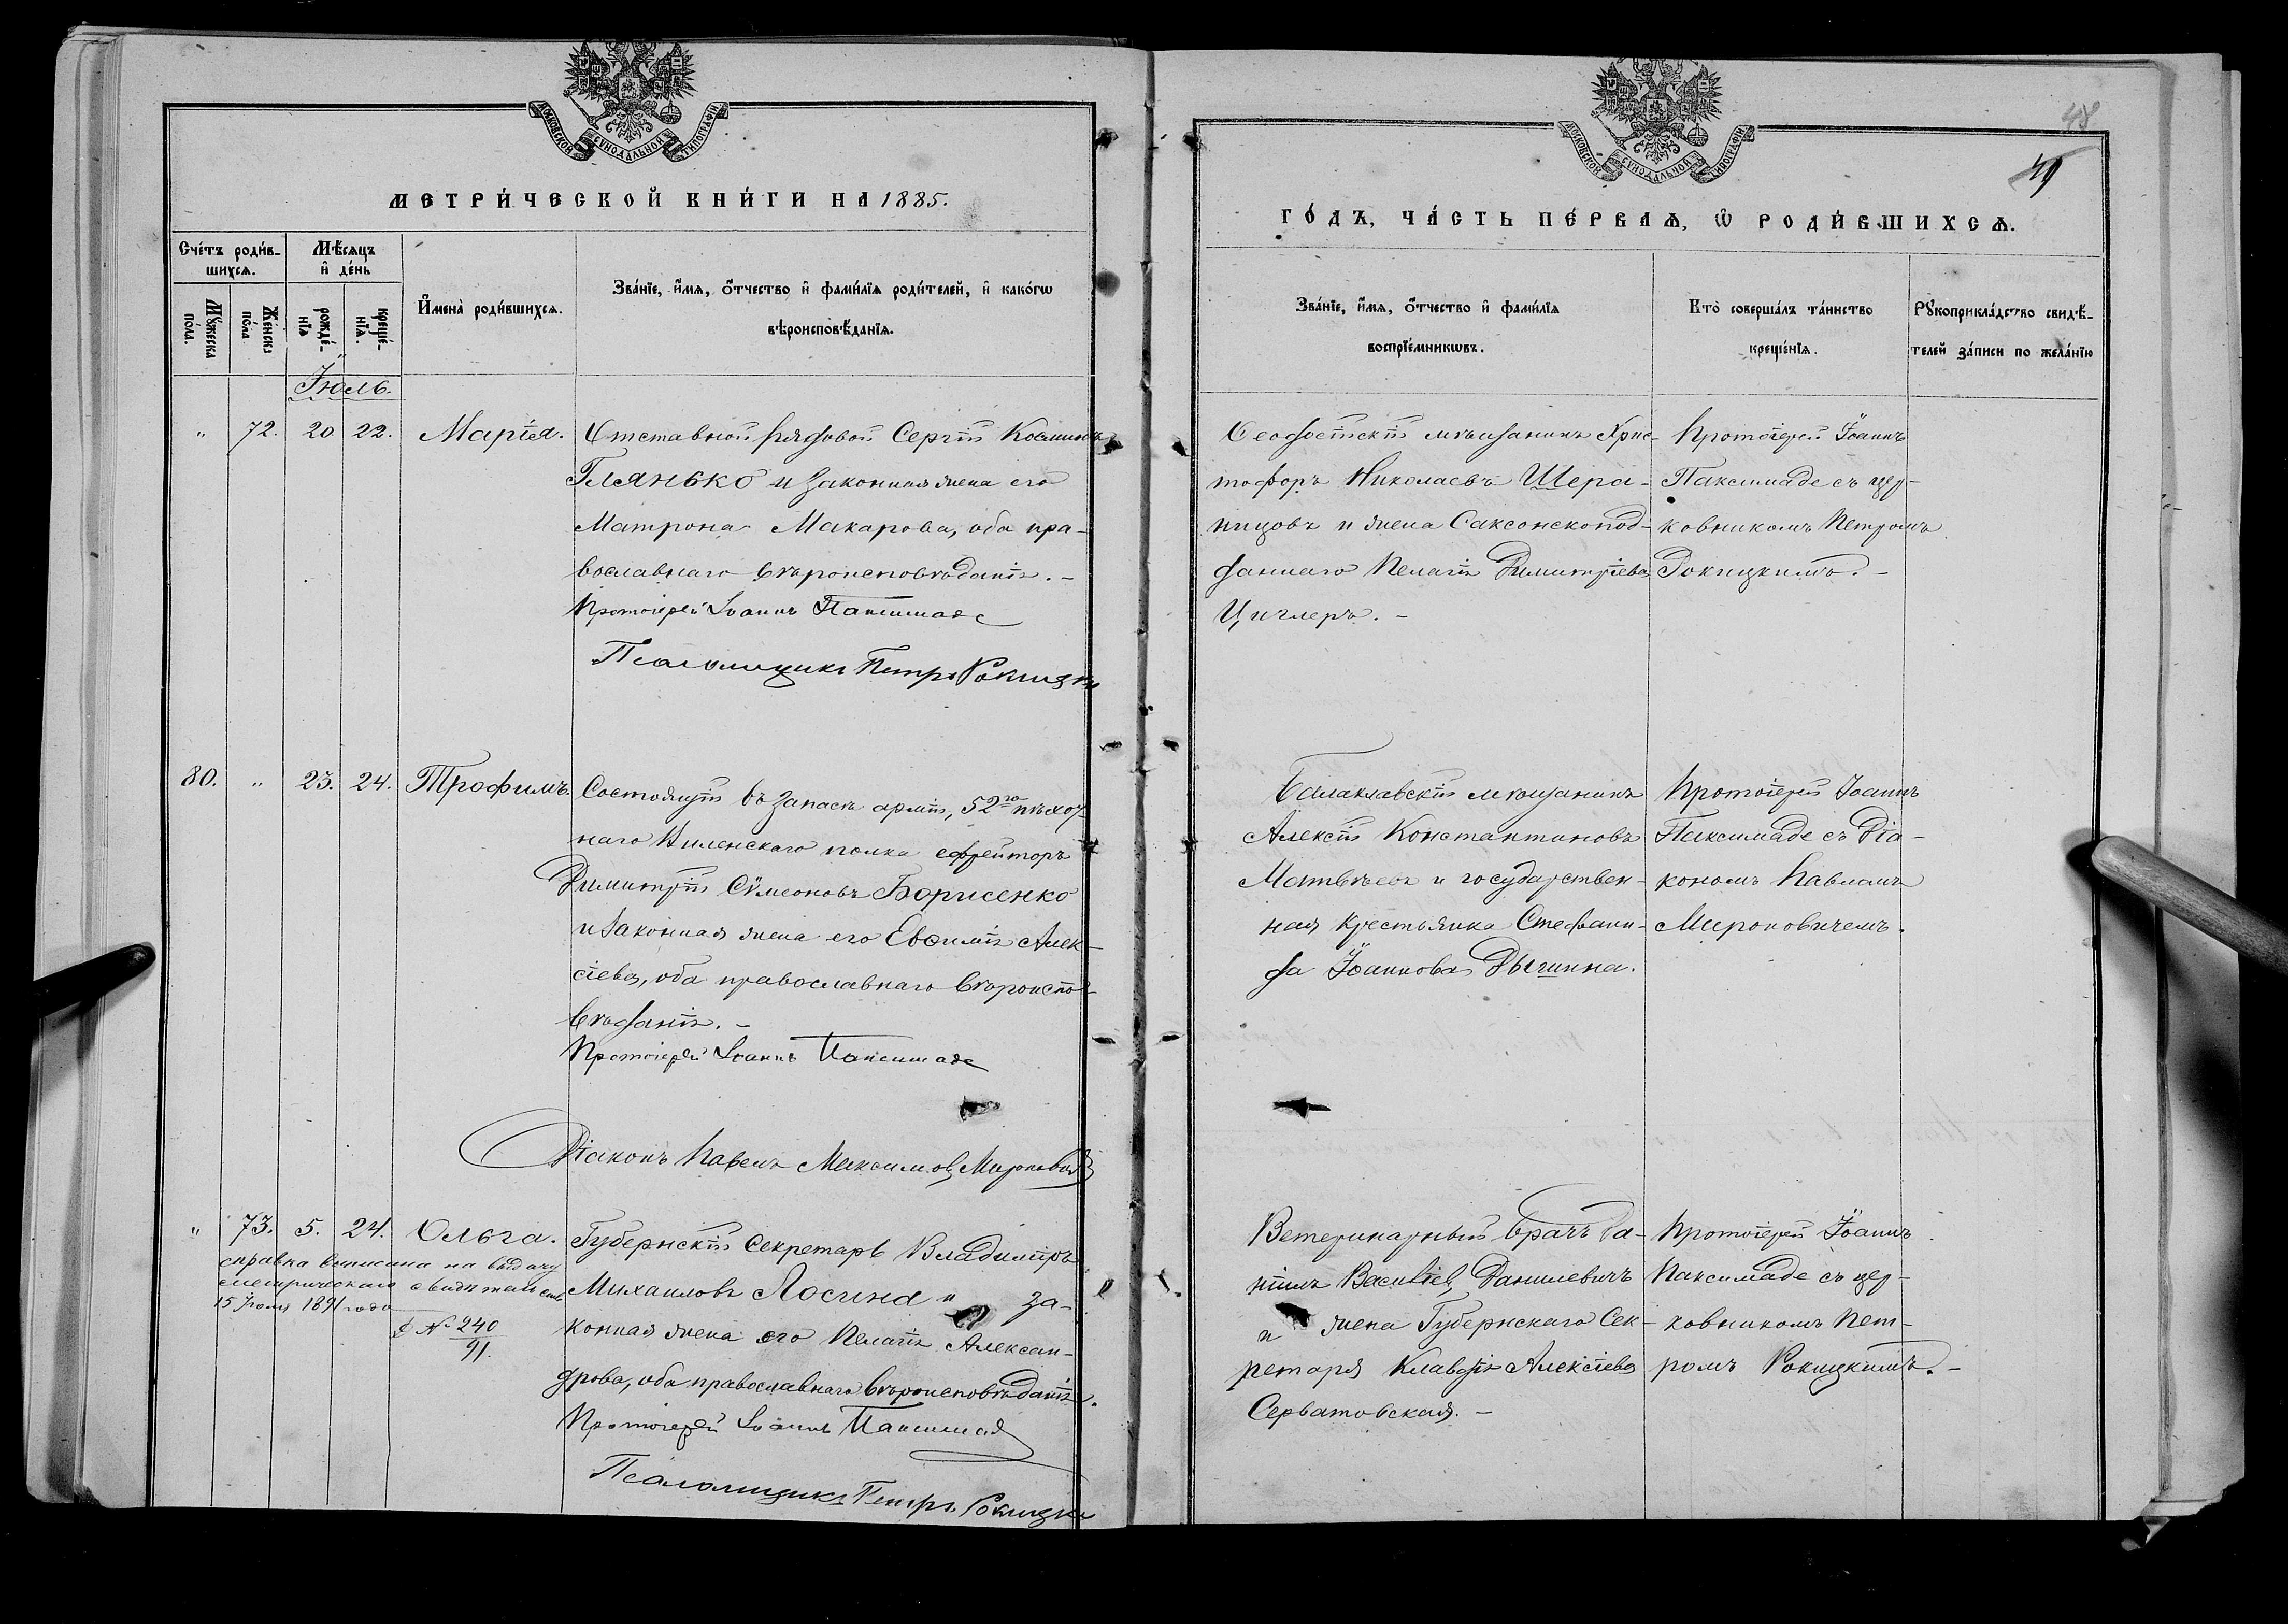 МОСКОВСКОЙ СУНОДАЛЬНОЙ ТИПОГРАФІИ
МЕТРИ́ЧЕСКОЙ КНИ́ГИ НА 1885.
Сче́тъ роди́в-
шихсѧ.
Мѣ́сѧцъ
и҆ де́нь
Мꙋ́жеска
по́ла.
Же́нска
по́ла
рожде́-
нїѧ
креще́-
нїѧ.
И҆мена̀ роди́вшихсѧ.
Зва́нїе, и҆́мѧ, ѻ҆́тчество и҆ фами́лїѧ роди́телей, и҆ како́гѡ
вѣроисповѣ́данїѧ.
Іюль.
" 72. 20. 22. Марія.
Отставной рядовой Сергій Косминъ
Глянько и законная жена его
Матрона Макарова, оба пра-
вославнаго вѣроисповѣданія. -
Протоіерей Іоаннъ Паксимаде
Псаломщикъ Петръ Рокицкі
80. " 23. 24. Трофимъ.
Состоящій въ запасѣ арміи, 52го пѣхот-
наго Виленскаго полка ефрейторъ
Димитрій Сѵмеоновъ Борисенко
и законная жена его Евѳимія Алек-
сіева, оба православнаго вѣроиспо-
вѣданія. -
Протоіерей Іоаннъ Паксимаде
Діаконъ Павелъ Максимовъ Мироновичъ
" 73. 5. 24. Ольга.
справка выписана на выдачу
метрическаго свидѣтельства
15 Іюля 1891 года
№ 240
91.
Губернскій Секретарь Владиміръ
Михаиловъ Лосина и за-
конная жена его Пелагія Алексан-
дрова, оба православнаго вѣроисповѣданія.
Протоіерей Іоаннъ Паксимад
Псаломщикъ Петръ Рокицкі
48
49
МОСКОВСКОЙ СУНОДАЛЬНОЙ ТИПОГРАФІИ
ГО́ДЪ, ЧА́СТЬ ПЕ́РВАѦ, Ѽ РОДИ́ВШИХСѦ.
Зва́нїе, и҆́мѧ, ѻ҆́тчество и҆ фами́лїѧ
воспрїе́мникѡвъ.
Кто̀ соверша́лъ та́инство
креще́нїѧ.
Рꙋкоприкла́дство свидѣ́-
телей за́писи по жела́нїю
Ѳеодосійскій мѣщанинъ Хрис-
тофоръ Николаевъ Шера-
пицовъ и жена Саксонскопод-
даннаго Пелагія Димитріева
Циглеръ. -
Протоіерей Іоаннъ
Паксимаде съ цер-
ковникомъ Петромъ
Рокицкимъ. -
Балаклавскій мѣщанинъ
Алексій Константиновъ
Матвѣевъ и государствен-
ная крестьянка Стефани-
да Іоаннова Дыгинна.
Протоіерей Іоаннъ
Паксимаде съ Діа-
кономъ Павломъ
Мироновичемъ.
Ветеринарный врачъ Да-
ніилъ Василіевъ Данилевичъ
и жена Губернскаго Сек-
ретаря Клавдія Алексіева
Серватовская. -
Протоіерей Іоаннъ
Паксимаде съ цер-
ковникомъ Пет-
ромъ Рокицкимъ. -